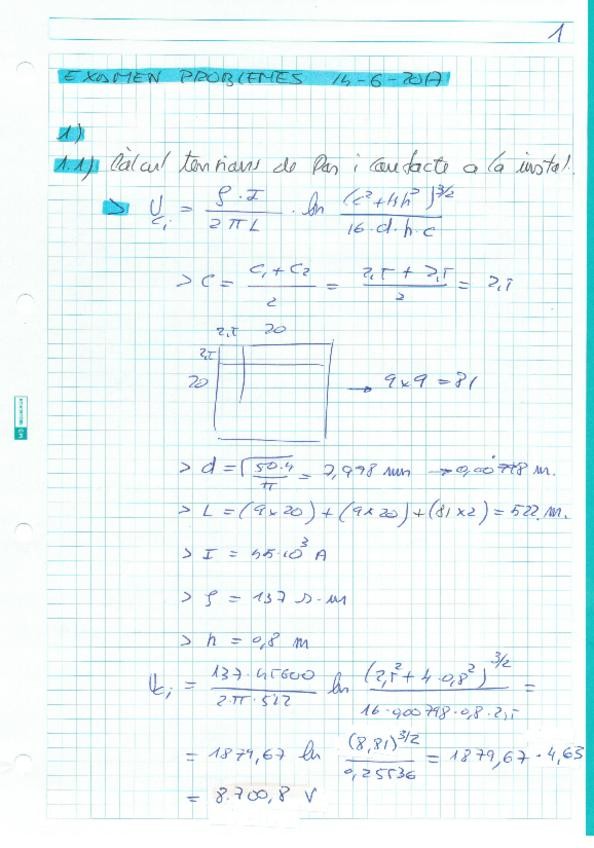 1
EXAMEN PROBLEMES 14-6-20A
1)
1.1) Càlcul tensions de Pas i contacte a la instal.
> U_ci = ρ·I / 2πL · ln (c²+4h²)^3/2 / 16·d·h·c
> C = (C₁+C₂) / 2 = (2,5+2,5) / 2 = 2,5
2,5 20
2,5
20 → 9x9=81
> d = √(50·4 / π) = 7,998 mm → 0,00798 m.
> L = (9x20)+(9x20)+(81x2) = 522 m.
> I = 45·10³ A
> ρ = 137 Ω·m
> h = 0,8 m
U_ci = 137·45600 / 2π·522 ln (2,5²+4·0,8²)^3/2 / 16·0,00798·0,8·2,5 =
= 1879,67 ln (8,81)^3/2 / 0,25536 = 1879,67·4,63
= 8.700,8 V